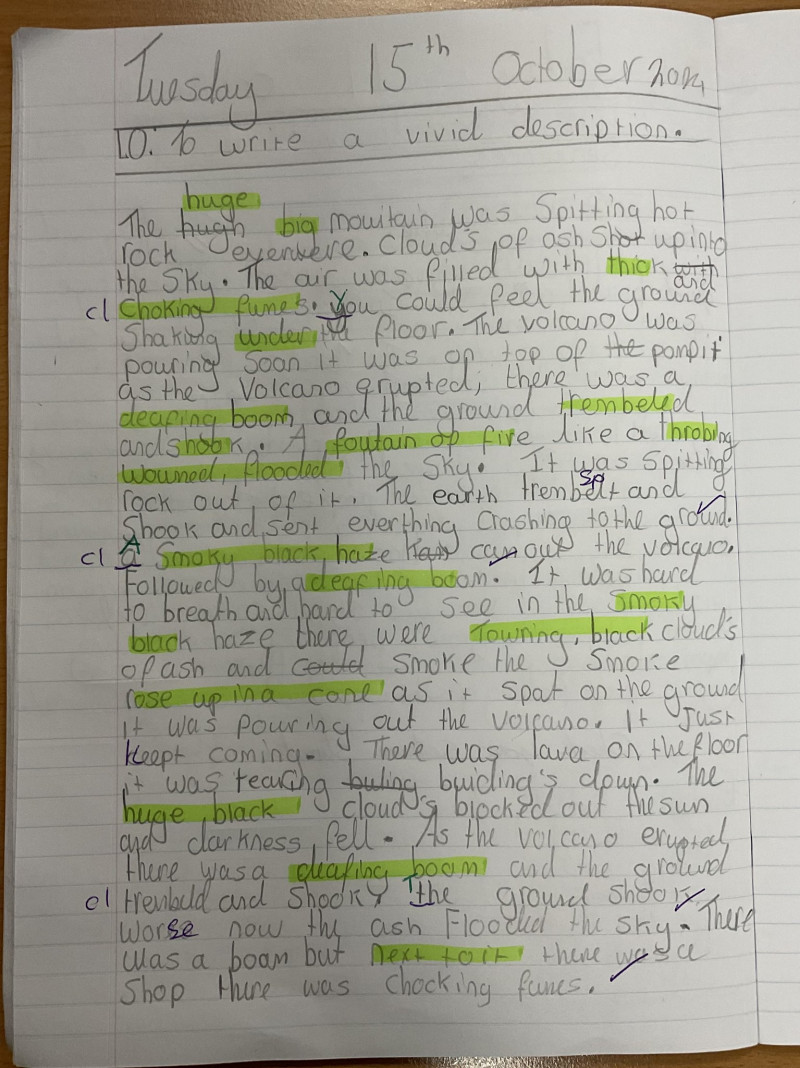 Tuesday 15th October 2024
LO: To write a vivid description.
huge
The hugh big mouitain was Spitting hot
rock eyenwere. Cloud's of ash Shot up into
the Sky. The air was filled with thick with
and
cl Choking funes. You could feel the ground
Shaking under the floor. The volcano was
pouring Soon it was on top of the pompit
as the Volcano erupted, there was a
deafing boom and the ground trembeled
and shook. A foutain of fire like a throbing
wouned, flooded the Sky. It was Spitting
rock out of it. The earth trembelt and
Sp
Shook and sent everthing Crashing to the ground.
cl A Smoky black haze can out the volcano.
Followed by a deafing boom. It was hard
to breath and hard to see in the Smoky
black haze there were Towring, black cloud's
of ash and could smoke the Smoke
rose up in a cone as it spat on the ground
it was pouring out the volcano. It Just
keept coming. There was lava on the floor
it was tearing buling buiding's down. The
huge, black cloud's blocked out the sun
and darkness fell. As the volcano erupted,
there was a deafing boom and the ground
cl trembeld and Shook. The ground Shook
worse now the ash Flooded the sky. There
was a boam but next to it there was a
Shop there was Chocking funes.